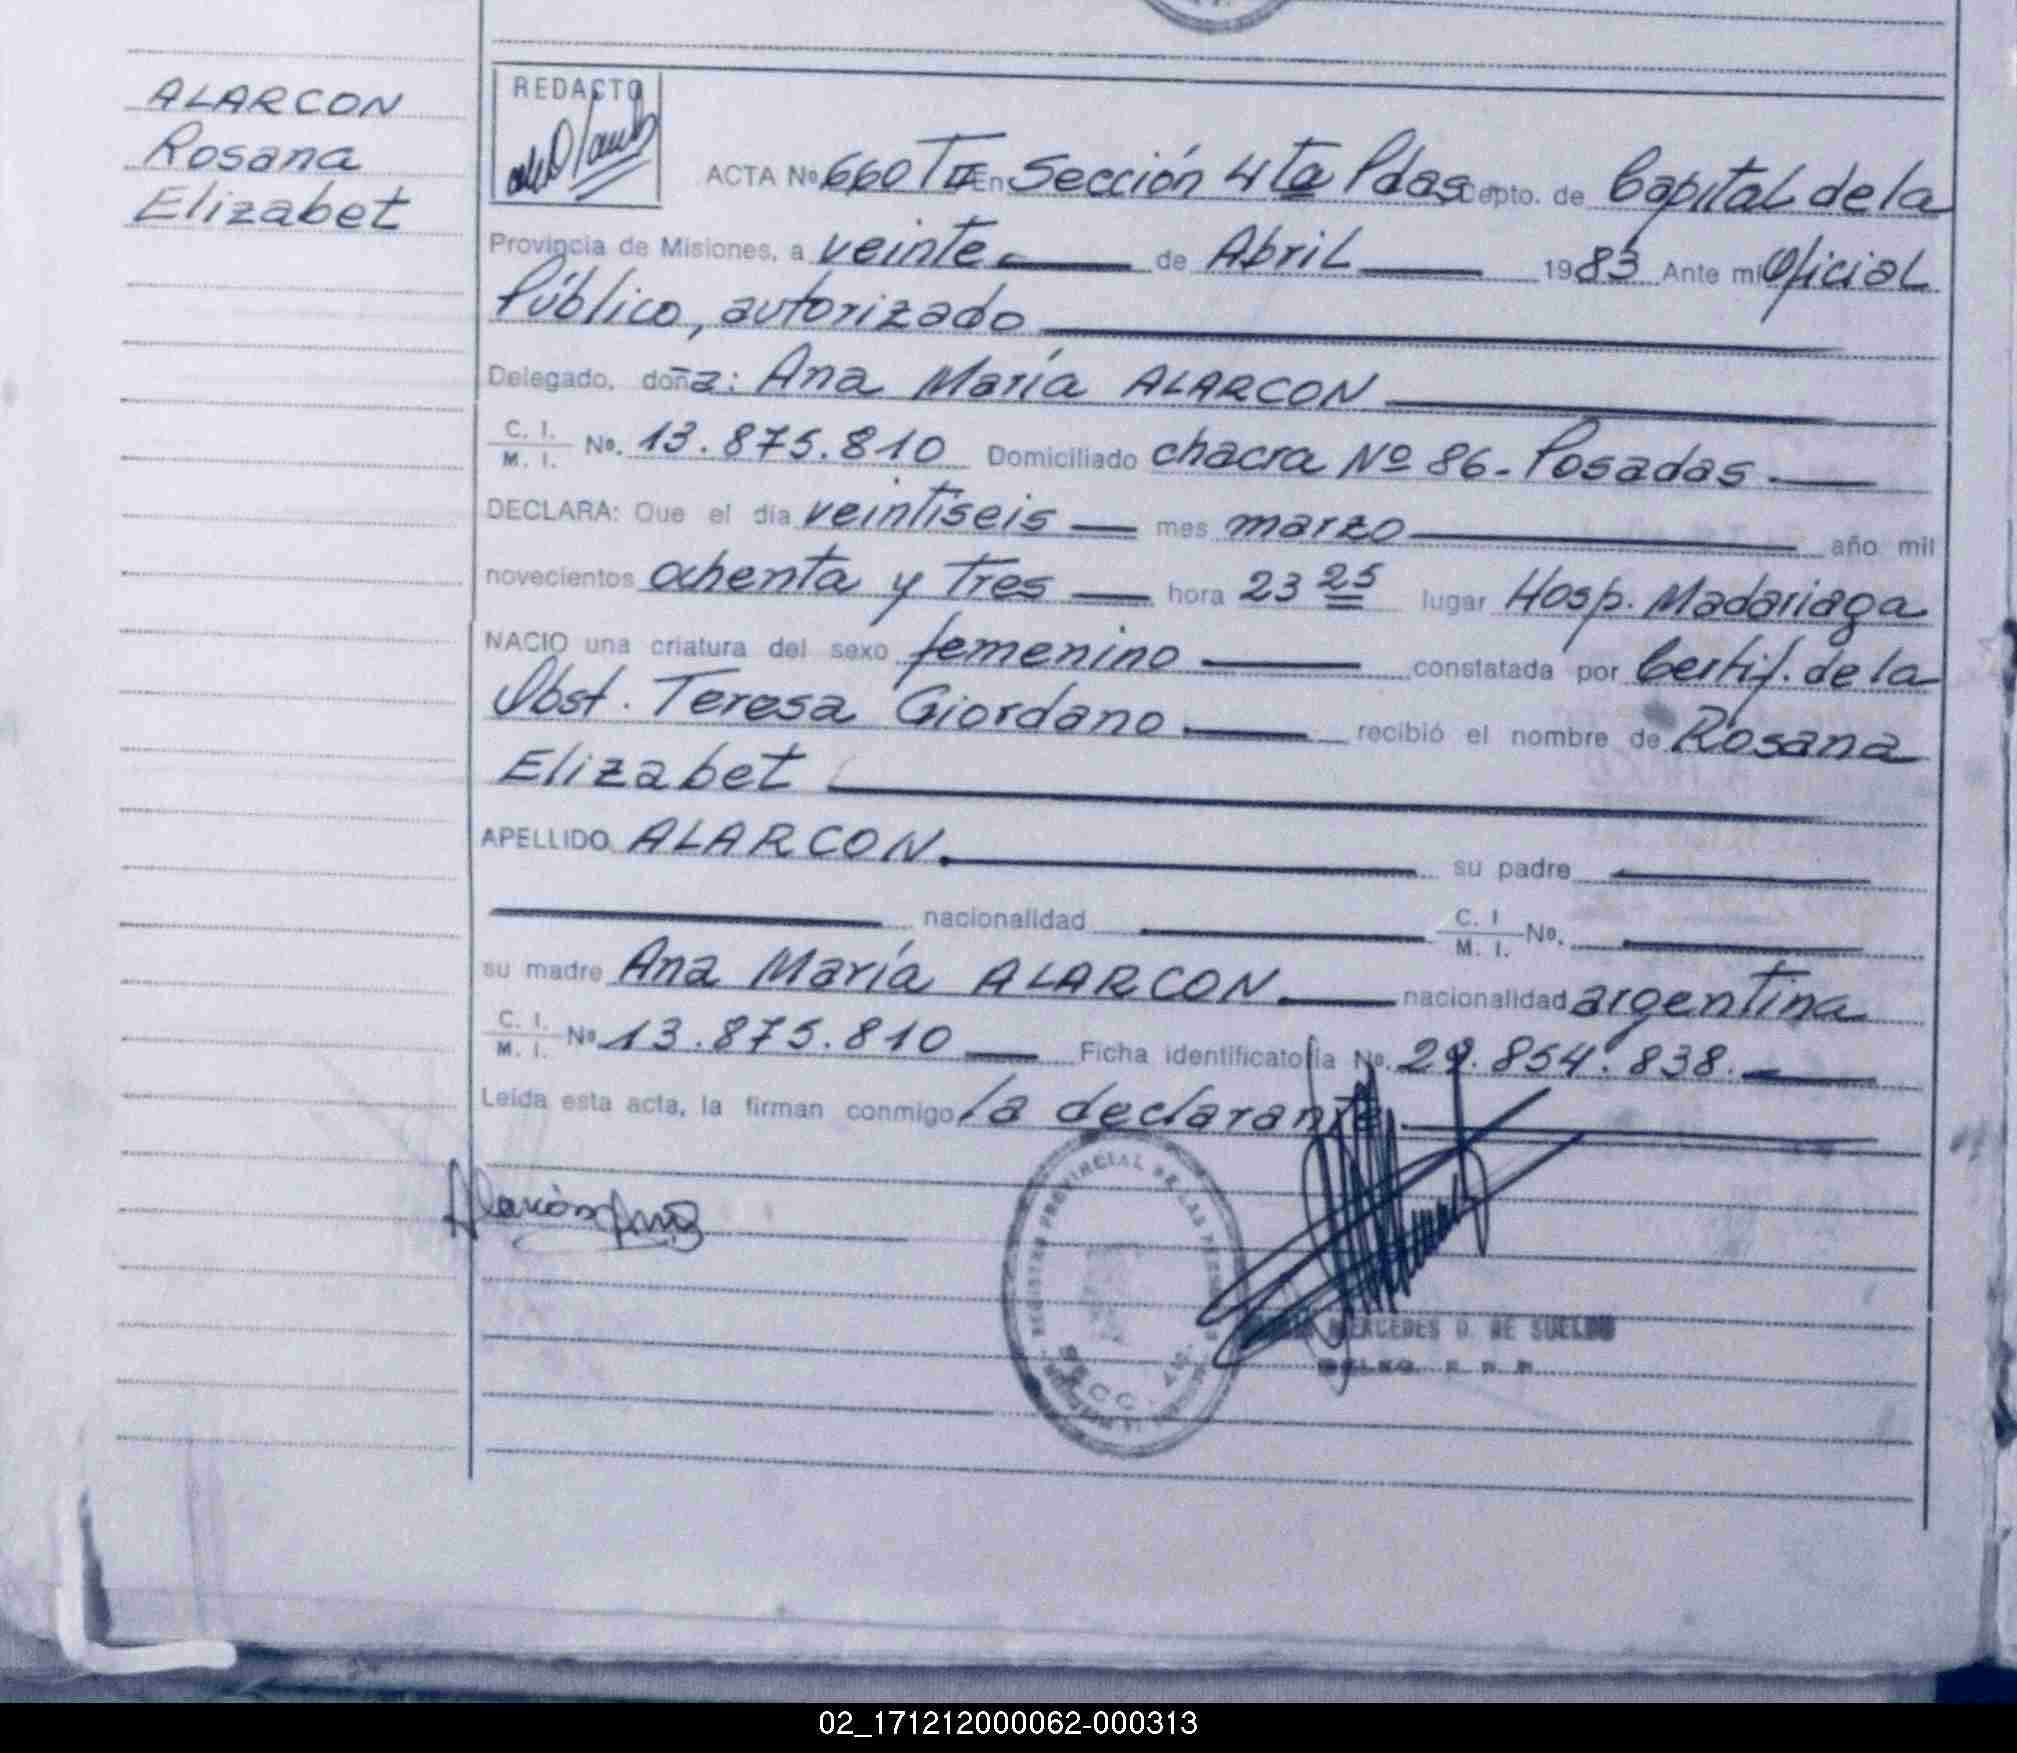 ALARCON
Rosana
Elizabet
REDACTO
ACTA Nº 660 TII En Sección 4ta Pdas Depto. de Capital de la
Provincia de Misiones, a veinte de Abril 1983 Ante mí Oficial
Público, autorizado
Delegado, doña: Ana María ALARCON
C. I. / M. I. No. 13.875.810 Domiciliado chacra Nº 86 - Posadas
DECLARA: Que el día veintiseis mes marzo año mil
novecientos ochenta y tres hora 23 25 lugar Hosp. Madariaga
NACIO una criatura del sexo femenino constatada por Certif. de la
Obst. Teresa Giordano recibió el nombre de Rosana
Elizabet
APELLIDO ALARCON. su padre
nacionalidad C. I / M. I. No.
su madre Ana María ALARCON nacionalidad argentina
C. I. / M. I. Nº 13.875.810 Ficha identificatoria No. 29.854.838.
Leída esta acta, la firman conmigo la declarante.
Alarcón Ana
REGISTRO PROVINCIAL DE LAS PERSONAS
SECC. 4ta
MERCEDES D. DE SUELDO
02_171212000062-000313